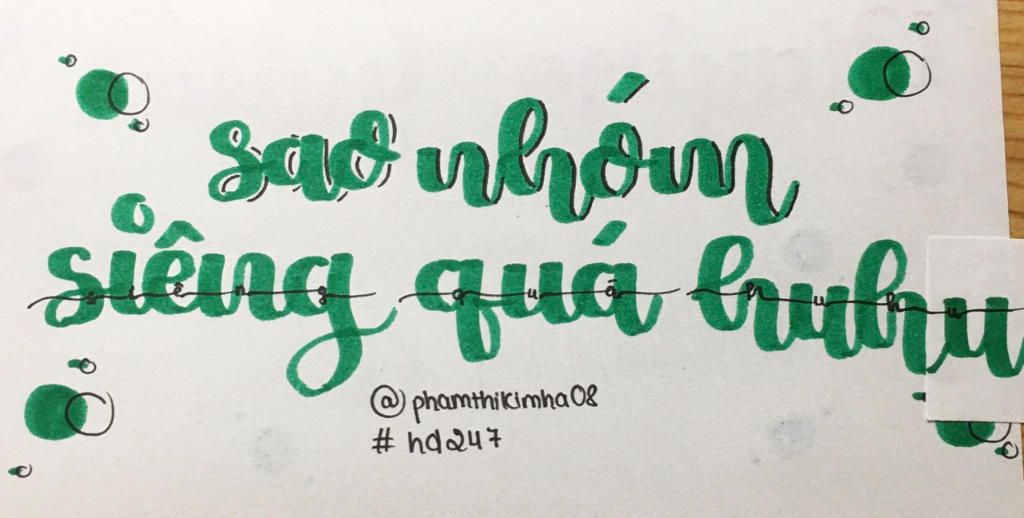 sao nhóm
siêng quá huhu
@phamthikimha08
#hd247